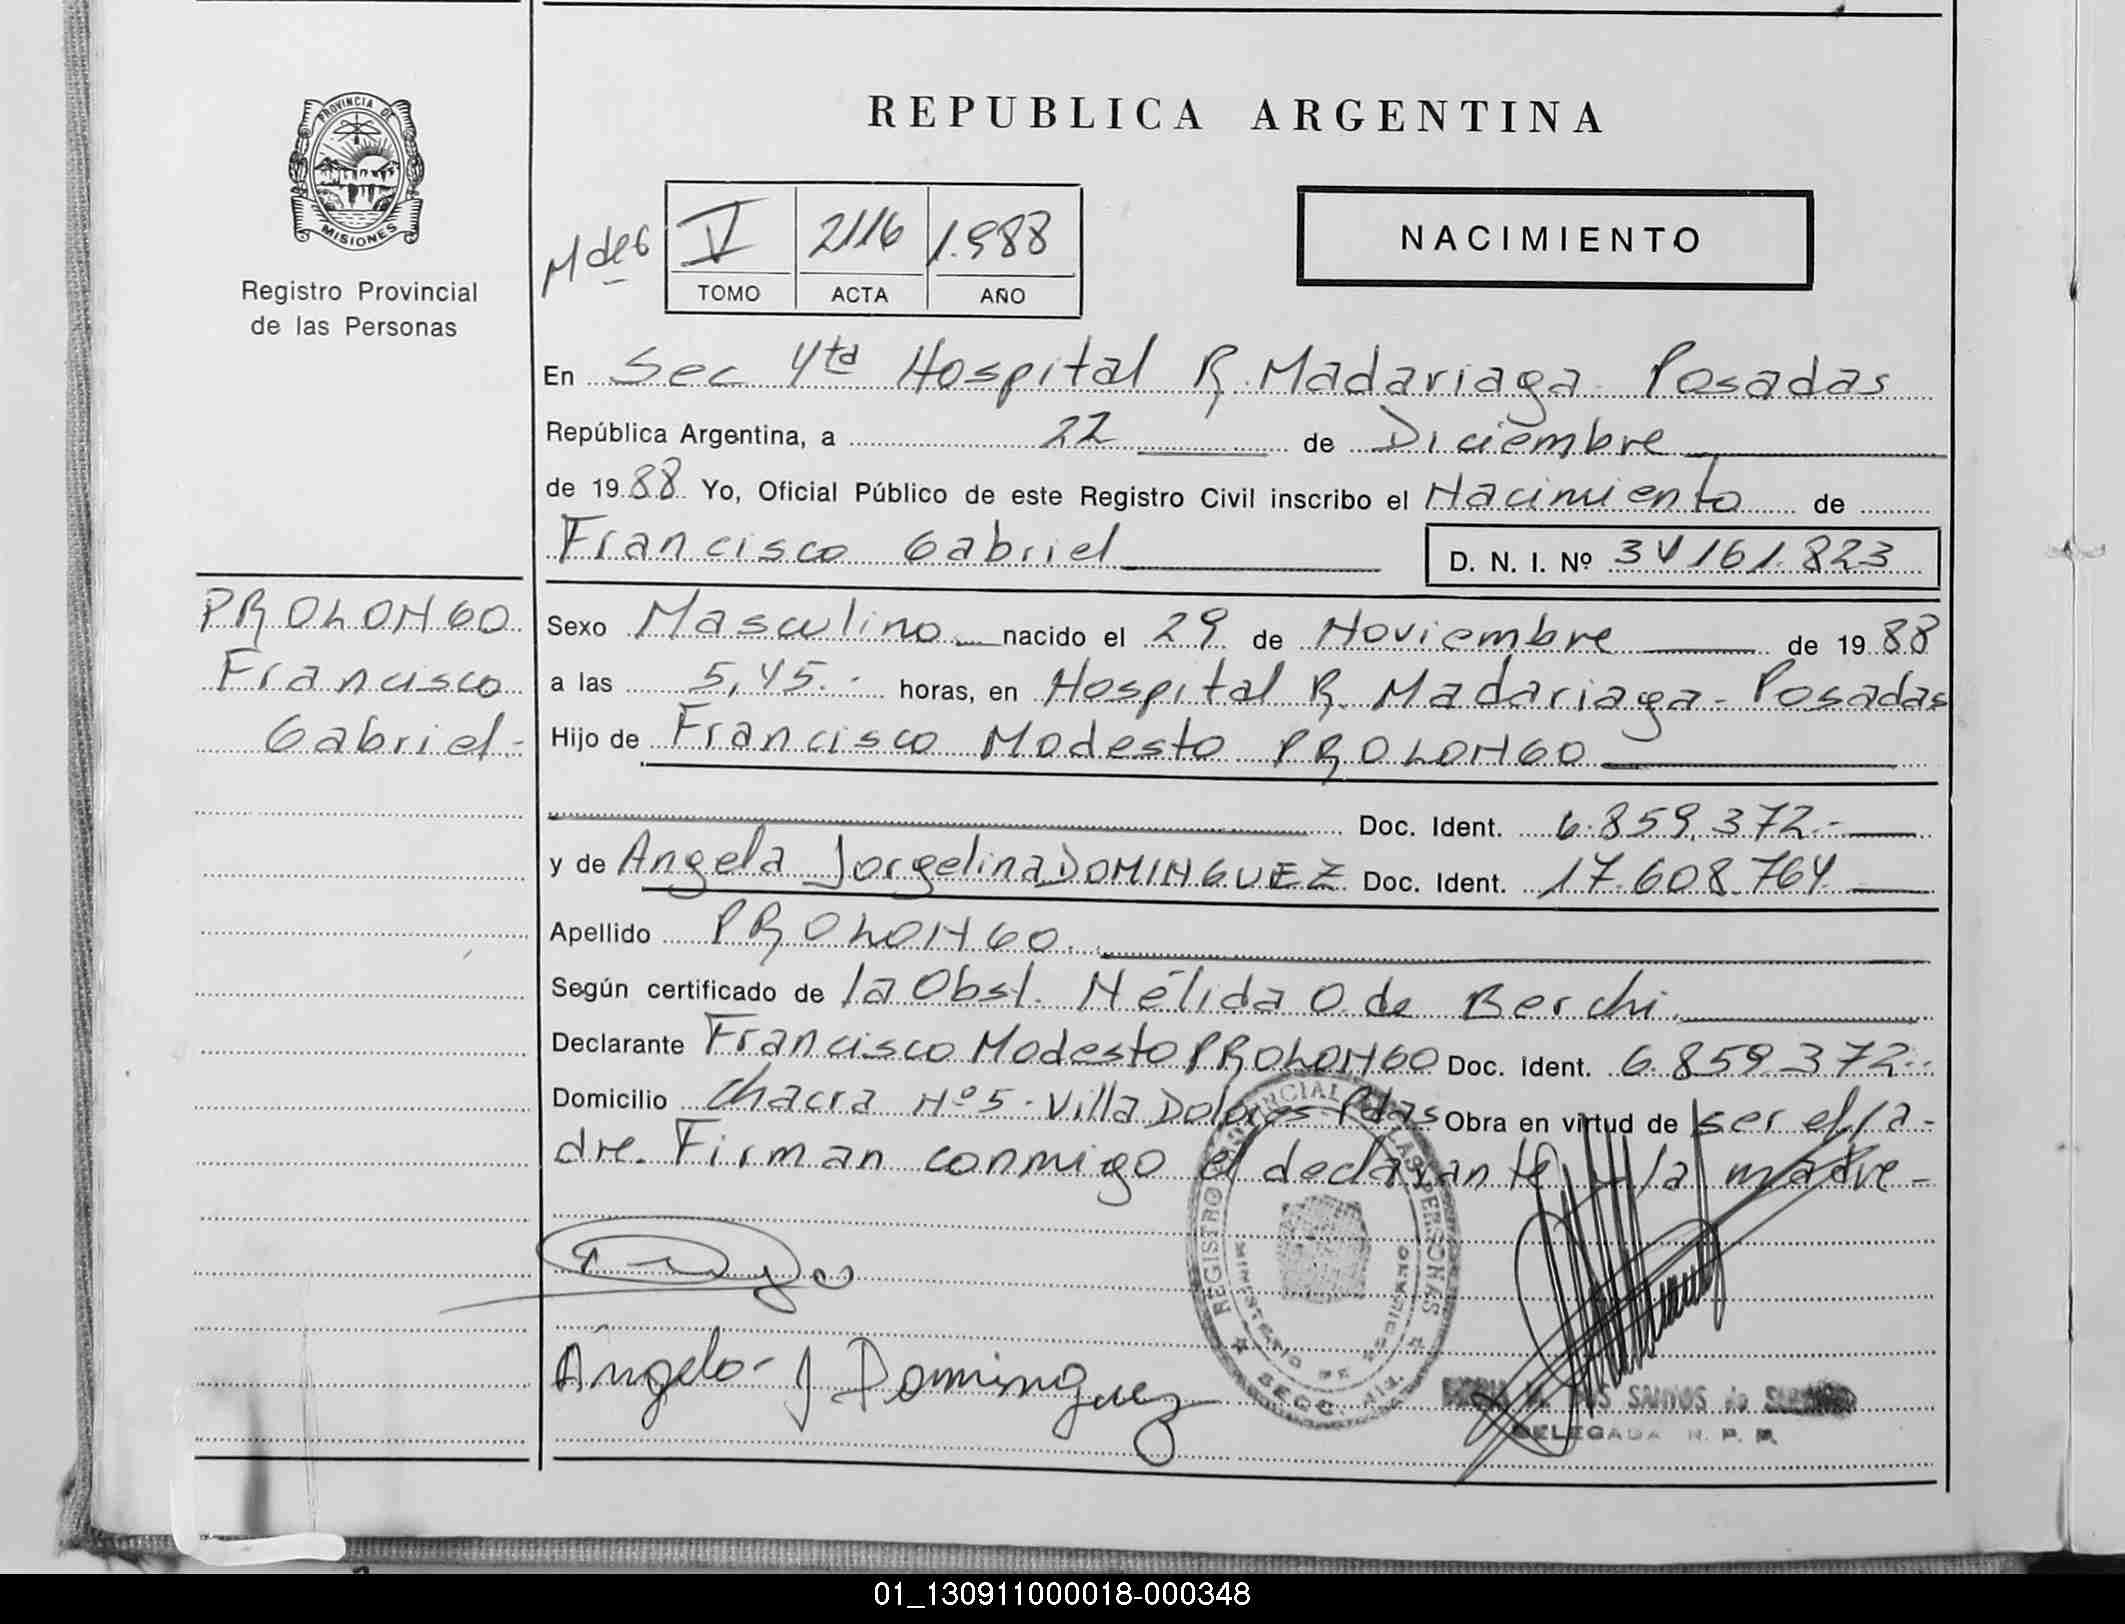 PROVINCIA DE
MISIONES
Registro Provincial
de las Personas
REPUBLICA ARGENTINA
M de 6
V 2116 1.988
TOMO ACTA AÑO
NACIMIENTO
En Sec 4ta Hospital R. Madariaga Posadas
República Argentina, a 22 de Diciembre
de 1988 Yo, Oficial Público de este Registro Civil inscribo el Nacimiento de
Francisco Gabriel D. N. I. Nº 34161.823
PROLONGO
Francisco
Gabriel-
Sexo Masculino nacido el 29 de Noviembre de 1988
a las 5,45.- horas, en Hospital R. Madariaga - Posadas
Hijo de Francisco Modesto PROLONGO
Doc. Ident. 6.859.372.-
y de Angela Jorgelina DOMINGUEZ Doc. Ident. 17.608.764.
Apellido PROLONGO.
Según certificado de la Obst. Nélida O. de Berchi.
Declarante Francisco Modesto PROLONGO Doc. Ident. 6.859.372.-
Domicilio Chacra Nº 5 - Villa Dolores - Pdas Obra en virtud de ser el pa-
dre. Firman conmigo el declarante y la madre-
REGISTRO PROVINCIAL DE LAS PERSONAS
MINISTERIO DE GOBIERNO
SECC.
Angela J Dominguez
DOS SANTOS de
DELEGADA R. P. P.
01_130911000018-000348